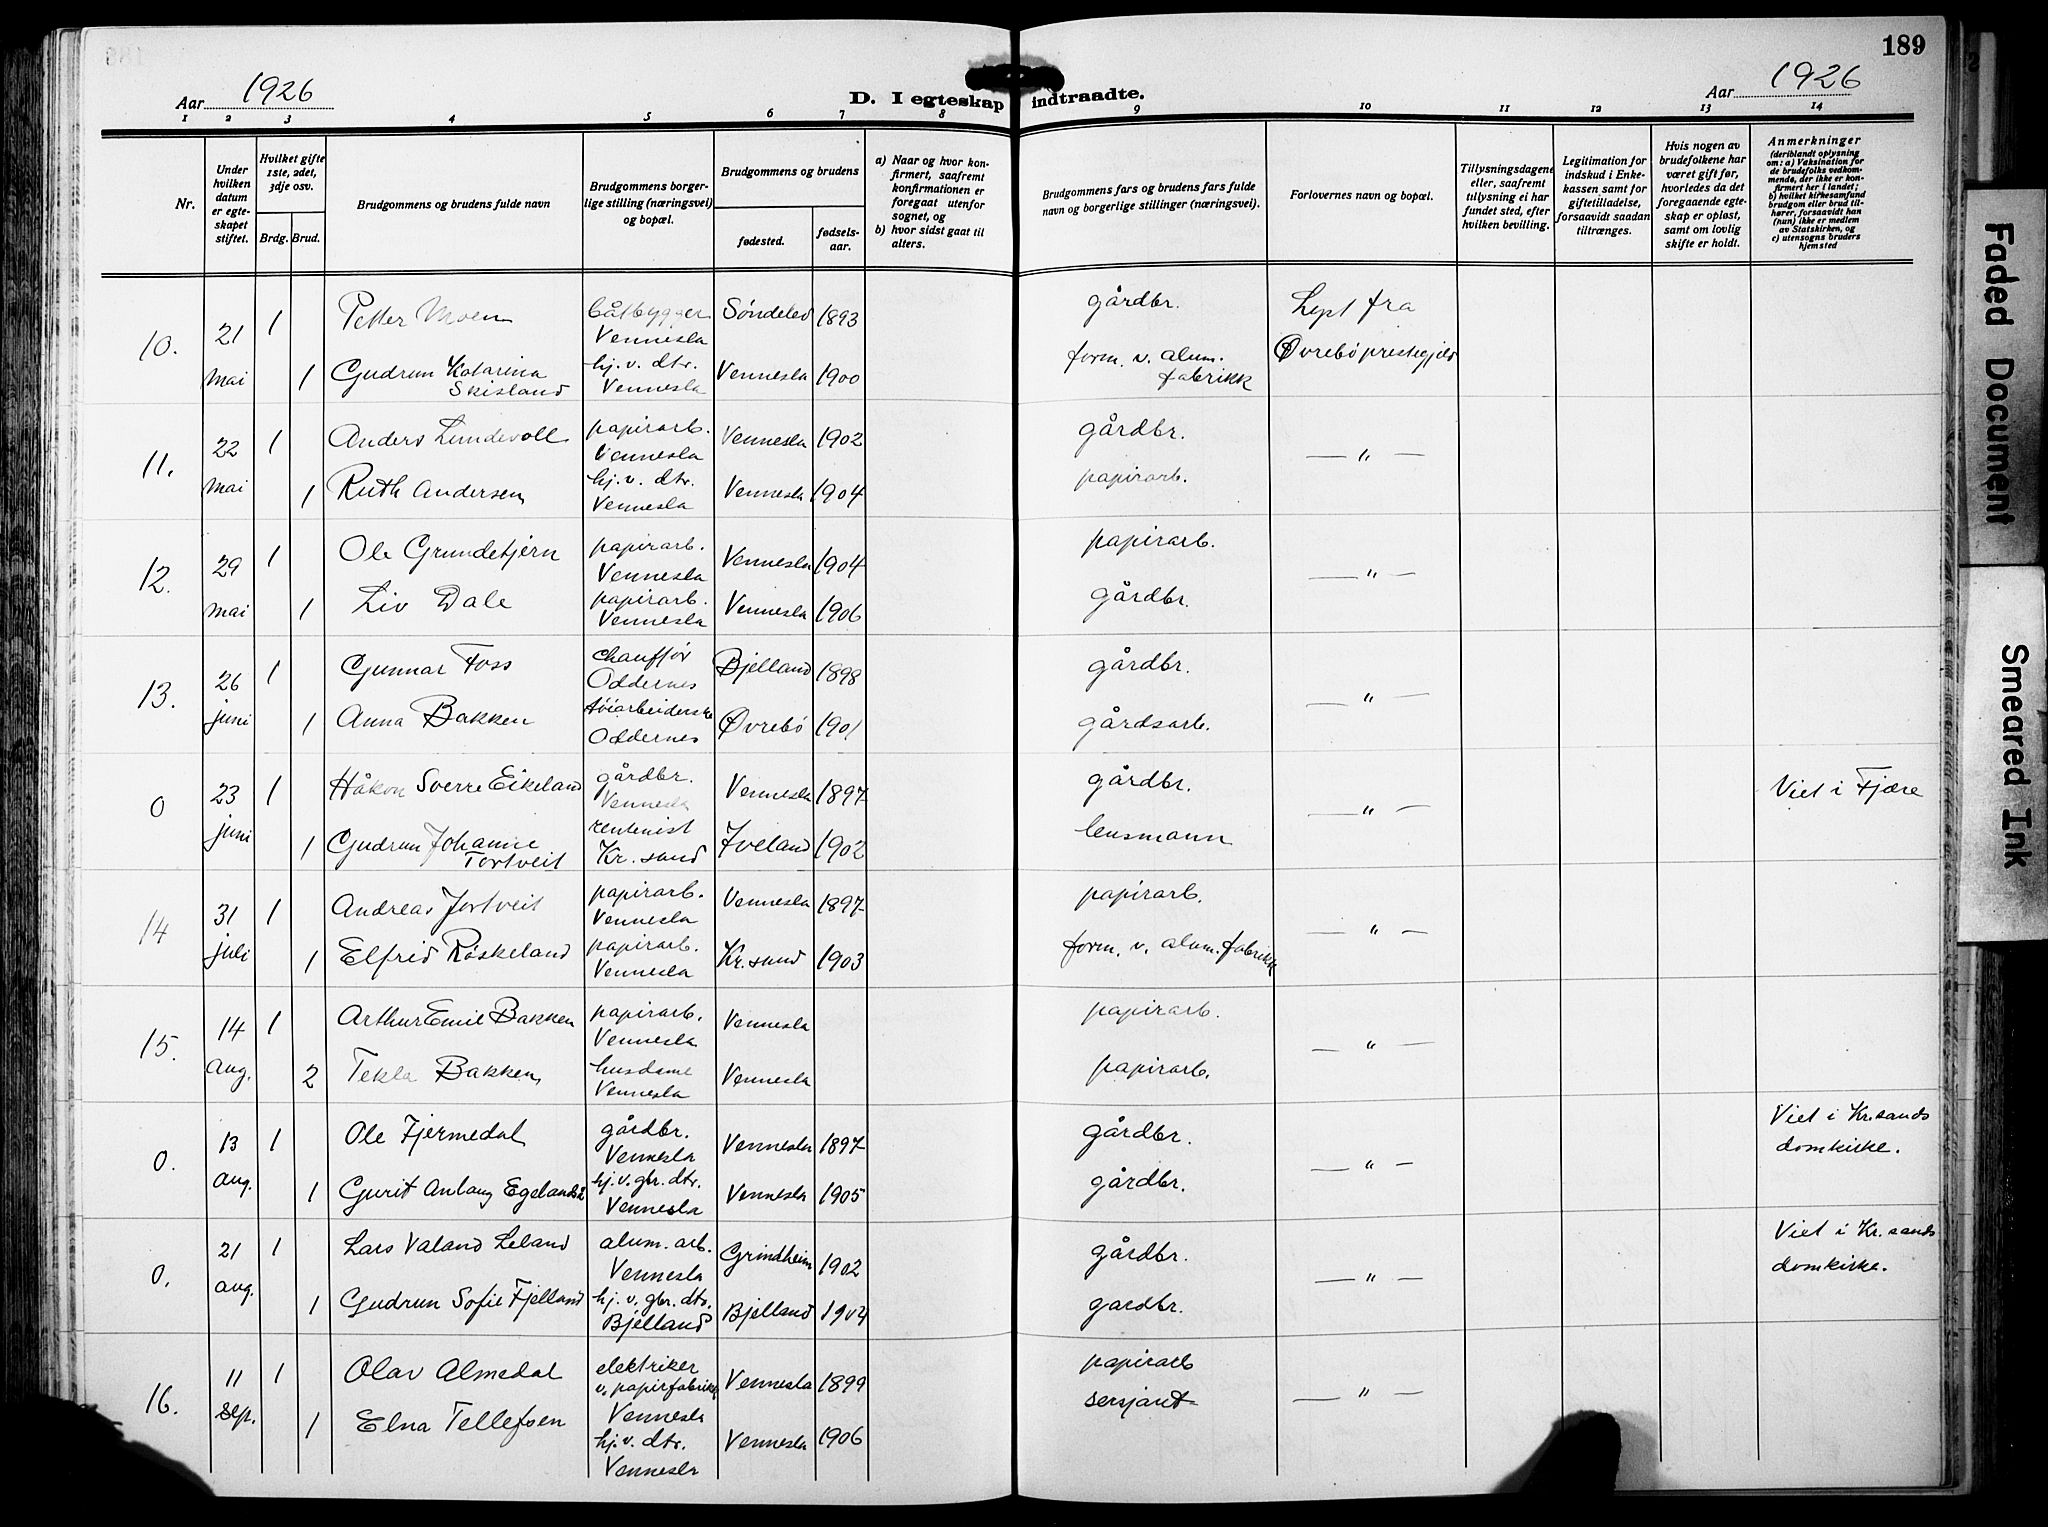 189
Aar 1926
D. I egteskap indtraadte.
Aar 1926
1 2 3 4 5 6 7 8 9 10 11 12 13 14
Nr.
Under hvilken datum er egteskapet stiftet.
Hvilket gifte 1ste, 2det, 3dje osv.
Brdg. Brud.
Brudgommens og brudens fulde navn
Brudgommens borgerlige stilling (næringsvei) og bopæl.
Brudgommens og brudens
fødested.
fødselsaar.
a) Naar og hvor konfirmert, saafremt konfirmationen er foregaat utenfor sognet, og
b) hvor sidst gaat til alters.
Brudgommens fars og brudens fars fulde navn og borgerlige stillinger (næringsvei).
Forlovernes navn og bopæl.
Tillysningsdagene eller, saafremt tillysning ei har fundet sted, efter hvilken bevilling.
Legitimation for indskud i Enkekassen samt for giftetilladelse, forsaavidt saadan tiltrænges.
Hvis nogen av brudefolkene har været gift før, hvorledes da det foregaaende egteskap er opløst, samt om lovlig skifte er holdt.
Anmerkninger
(deriblandt oplysning om: a) Vaksination for de brudefolks vedkommende, der ikke er konfirmert her i landet; b) hvilket kirkesamfund brudgom eller brud tilhører, forsaavidt han (hun) ikke er medlem av Statskirken, og c) utensogns bruders hjemsted
10. 21 mai 1 Petter Moen båtbygger Vennesla Søndeled 1893 gårdbr. Lyst fra
1 Gudrun Katarina Skisland hj. v. dtr. Vennesla Vennesla 1900 form. v. alum. fabrikk Øvrebø prestegjeld
11. 22 mai 1 Anders Lundevoll papirarb. Vennesla Vennesla 1902 gårdbr. — " —
1 Ruth Andersen hj. v. dtr. Vennesla Vennesla 1904 papirarb.
12. 29 mai 1 Ole Grundetjern papirarb. Vennesla Vennesla 1904 papirarb. — " —
1 Liv Dale papirarb. Vennesla Vennesla 1906 gårdbr.
13. 26 juni 1 Gunnar Foss chauffør Oddernes Bjelland 1898 gårdbr. — " —
1 Anna Bakken tøiarbeiderske Oddernes Øvrebø 1901 gårdsarb.
0 23 juni 1 Håkon Sverre Eikeland gårdbr. Vennesla Vennesla 1897 gårdbr. — " — Viet i Fjære
1 Gudrun Johanne Tortveit rentenist Kr. sand Iveland 1902 lensmann
14 31 juli 1 Andreas Jortveit papirarb. Vennesla Vennesla 1897 papirarb. — " —
1 Elfrid Røskeland papirarb. Vennesla Kr. sand 1903 form. v. alum. fabrikk
15. 14 aug. 1 Arthur Emil Bakken papirarb. Vennesla Vennesla papirarb. — " —
2 Tekla Bakken husdame Vennesla Vennesla papirarb.
0. 13 aug. 1 Ole Fjermedal gårdbr. Vennesla Vennesla 1897 gårdbr. — " — Viet i Kr.sands domkirke.
1 Gurit Anlaug Egelandså hj. v. gbr. dtr. Vennesla Vennesla 1905 gårdbr.
0. 21 aug. 1 Lars Valand Leland alum. arb. Vennesla Grindheim 1902 gårdbr. — " — Viet i Kr. sands domkirke.
1 Gudrun Sofie Fjelland hj. v. gbr. dtr. Bjelland Bjelland 1904 gardbr.
16. 11 sept. 1 Olav Almedal elektriker v. papirfabrikk Vennesla Vennesla 1899 papirarb — " —
1 Elna Tellefsen hj. v. dtr. Vennesla Vennesla 1906 sersjant
Faded Document
Smeared Ink